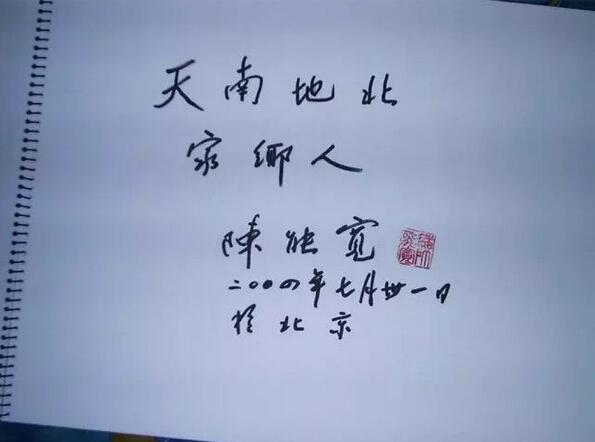 天南地北
家鄉人
陳能寬
二〇〇四年七月卅一日
於北京